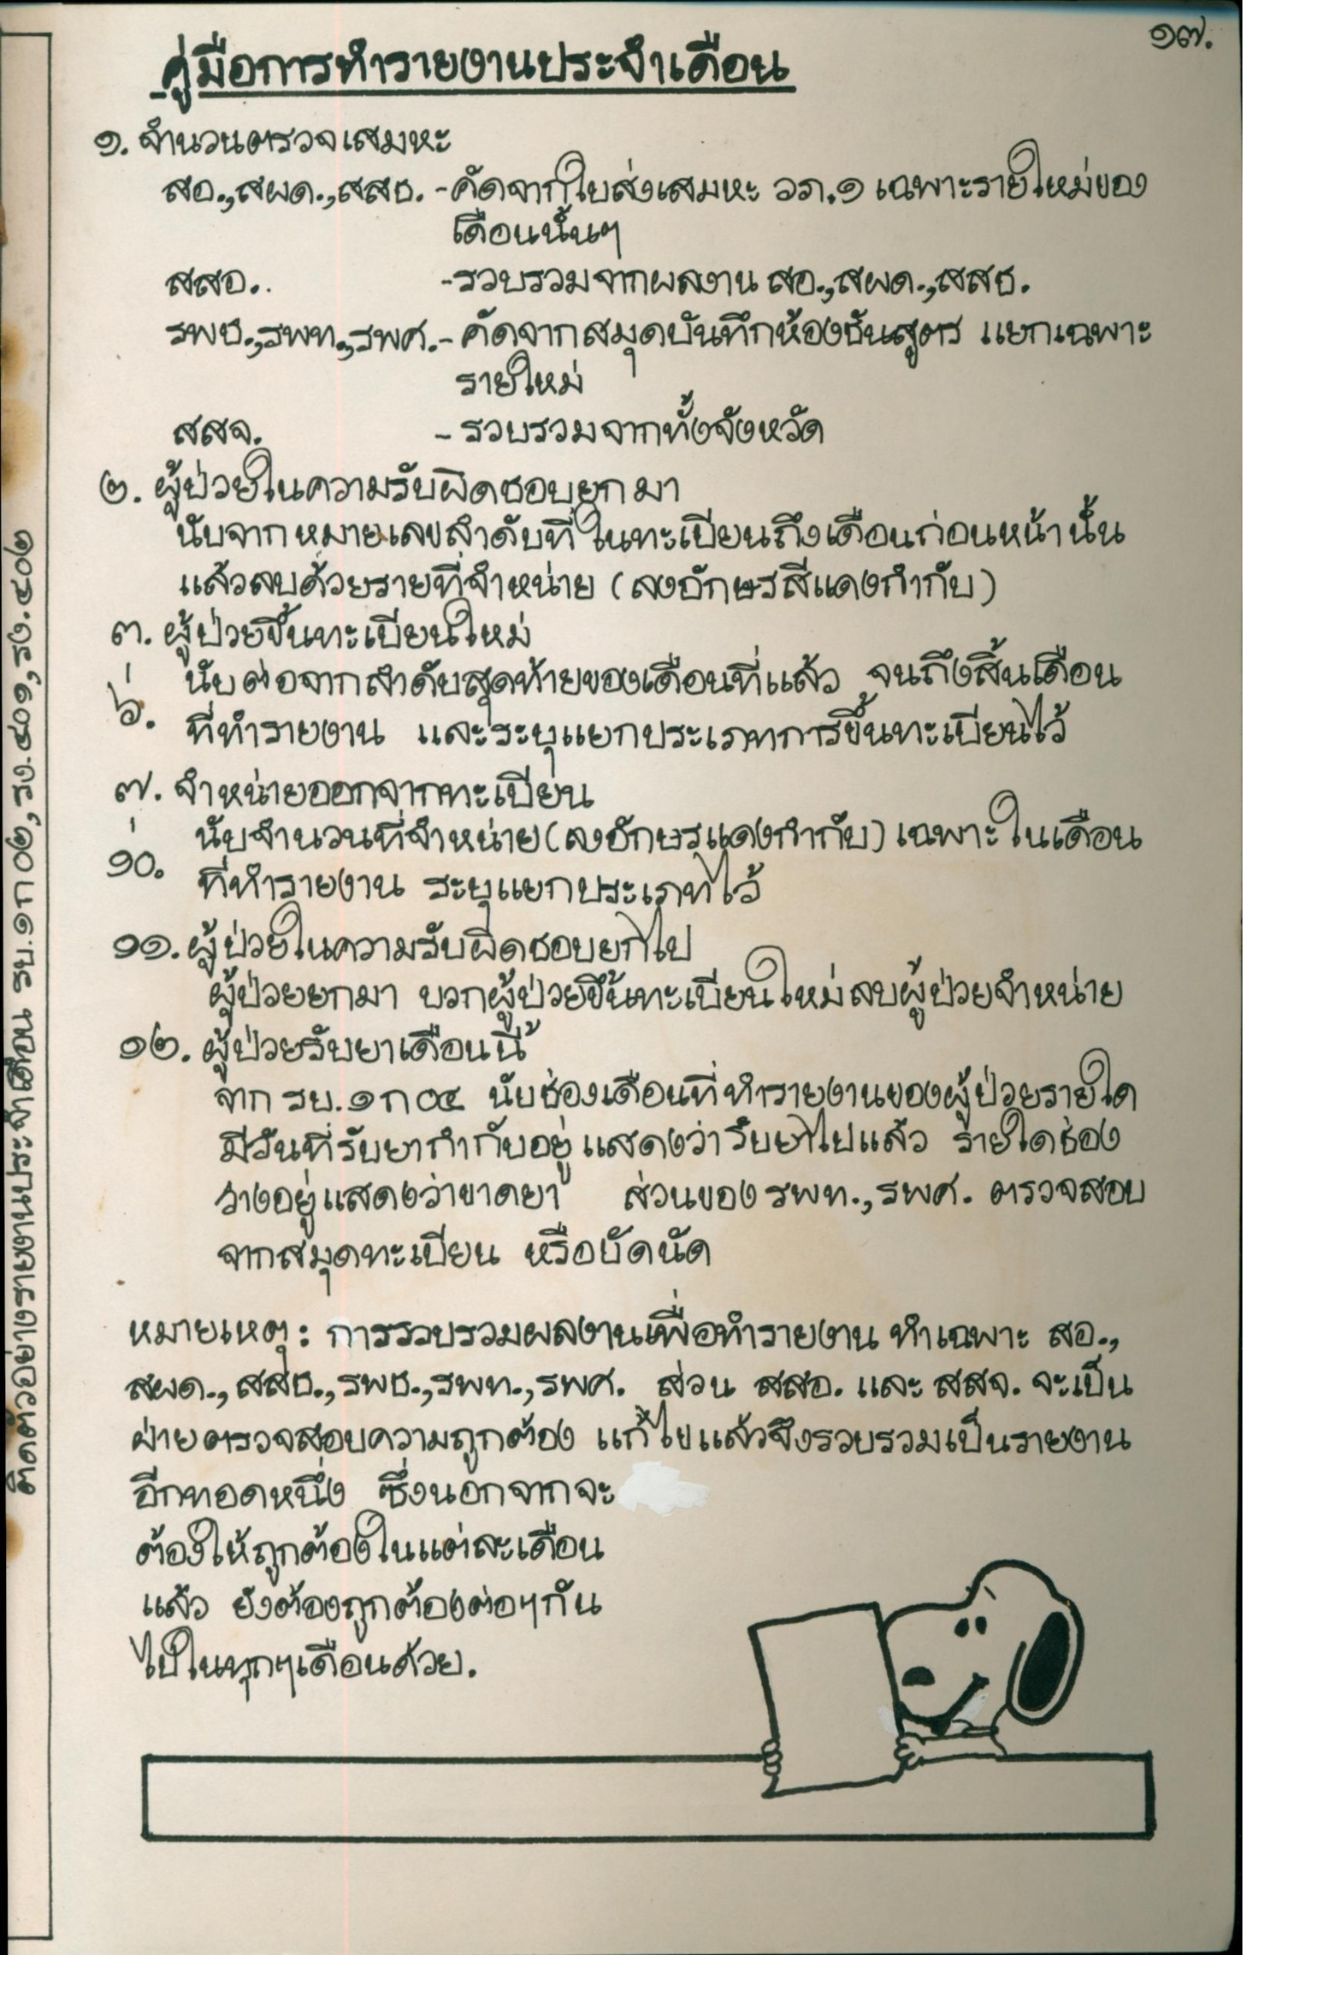 ๑๗.
คู่มือการทำรายงานประจำเดือน
๑. จำนวนตรวจเสมหะ
สอ.,สผด.,สสช. - คัดจากใบส่งเสมหะ วภ.๑ เฉพาะรายใหม่ของ
เดือนนั้นๆ
สสอ. - รวบรวมจากผลงาน สอ.,สผด.,สสช.
รพช.,รพท.,รพศ. - คัดจากสมุดบันทึกห้องชันสูตร แยกเฉพาะ
รายใหม่
สสจ. - รวบรวมจากทั้งจังหวัด
๒. ผู้ป่วยในความรับผิดชอบยกมา
นับจากหมายเลขลำดับที่ในทะเบียนถึงเดือนก่อนหน้านั้น
แล้วลบด้วยรายที่จำหน่าย (ลงอักษรสีแดงกำกับ)
๓. ผู้ป่วยขึ้นทะเบียนใหม่
นับต่อจากลำดับสุดท้ายของเดือนที่แล้ว จนถึงสิ้นเดือน
๖. ที่ทำรายงาน และระบุแยกประเภทการขึ้นทะเบียนไว้
๗. จำหน่ายออกจากทะเบียน
นับจำนวนที่จำหน่าย (ลงอักษรแดงกำกับ) เฉพาะในเดือน
๑๐. ที่ทำรายงาน ระบุแยกประเภทไว้
๑๑. ผู้ป่วยในความรับผิดชอบยกไป
ผู้ป่วยยกมา บวกผู้ป่วยขึ้นทะเบียนใหม่ลบผู้ป่วยจำหน่าย
๑๒. ผู้ป่วยรับยาเดือนนี้
จาก รบ.๑ก๐๔ นับช่องเดือนที่ทำรายงานของผู้ป่วยรายใด
มีวันที่รับยากำกับอยู่ แสดงว่ารับยาไปแล้ว รายใดช่อง
ว่างอยู่แสดงว่าขาดยา ส่วนของ รพท.,รพศ. ตรวจสอบ
จากสมุดทะเบียน หรือบัดนัด
หมายเหตุ : การรวบรวมผลงานเพื่อทำรายงาน ทำเฉพาะ สอ.,
สผด.,สสช.,รพช.,รพท.,รพศ. ส่วน สสอ. และ สสจ. จะเป็น
ฝ่ายตรวจสอบความถูกต้อง แก้ไขแล้วจึงรวบรวมเป็นรายงาน
อีกทอดหนึ่ง ซึ่งนอกจากจะ
ต้องให้ถูกต้องในแต่ละเดือน
แล้ว ยังต้องถูกต้องต่อๆกัน
ไปในทุกๆเดือนด้วย.
ติดตัวอย่างรายงานประจำเดือน